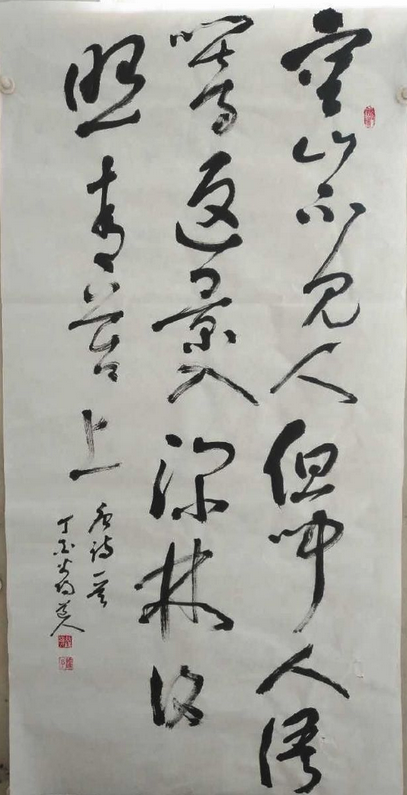 空山不见人但闻人语
響返景入深林復
照青苔上
唐诗一首
丁酉道人